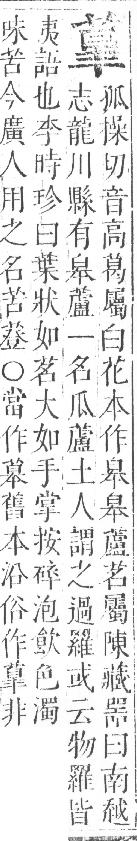 䔌
孤操切音高葛屬白花本作皋皋蘆茗屬陳藏器曰南越
志龍川縣有皋蘆一名瓜蘆土人謂之過羅或云物羅皆
夷語也李時珍曰葉狀如茗大如手掌按碎泡飮色濁
味苦今廣人用之名苦䔲○當作䔌舊本沿俗作䔌非